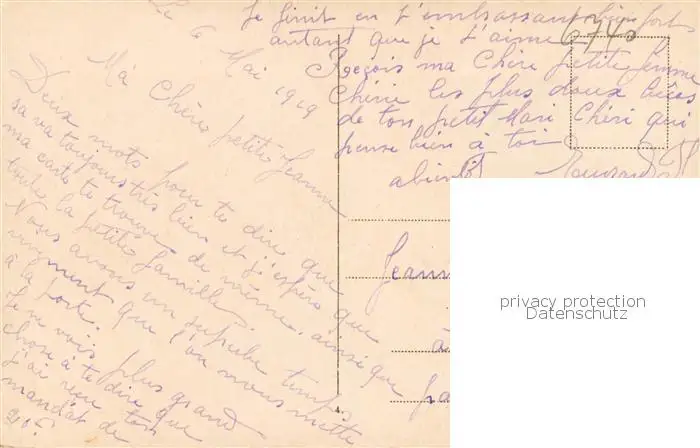 Le 6 Mai 1919
Ma Chère petite Jeanne
Deux mots pour te dire que
sa va toujours très bien et j'espère que
ma carte te trouve de même, ainsi que
toute la petite famille.
Nous avons un superbe temps
vivement que l'on nous mette
à la porte.
Je ne vois plus grand
chose à te dire que
j'ai reçu ton
mandat de
20F.
Je finit en t'embrassant bien fort
autant que je t'aime
Reçois ma Chère petite femme
Chérie les plus doux
de ton petit Mari Chéri qui
pense bien à toi
abientôt
6740
Jeann
à
privacy protection
Datenschutz